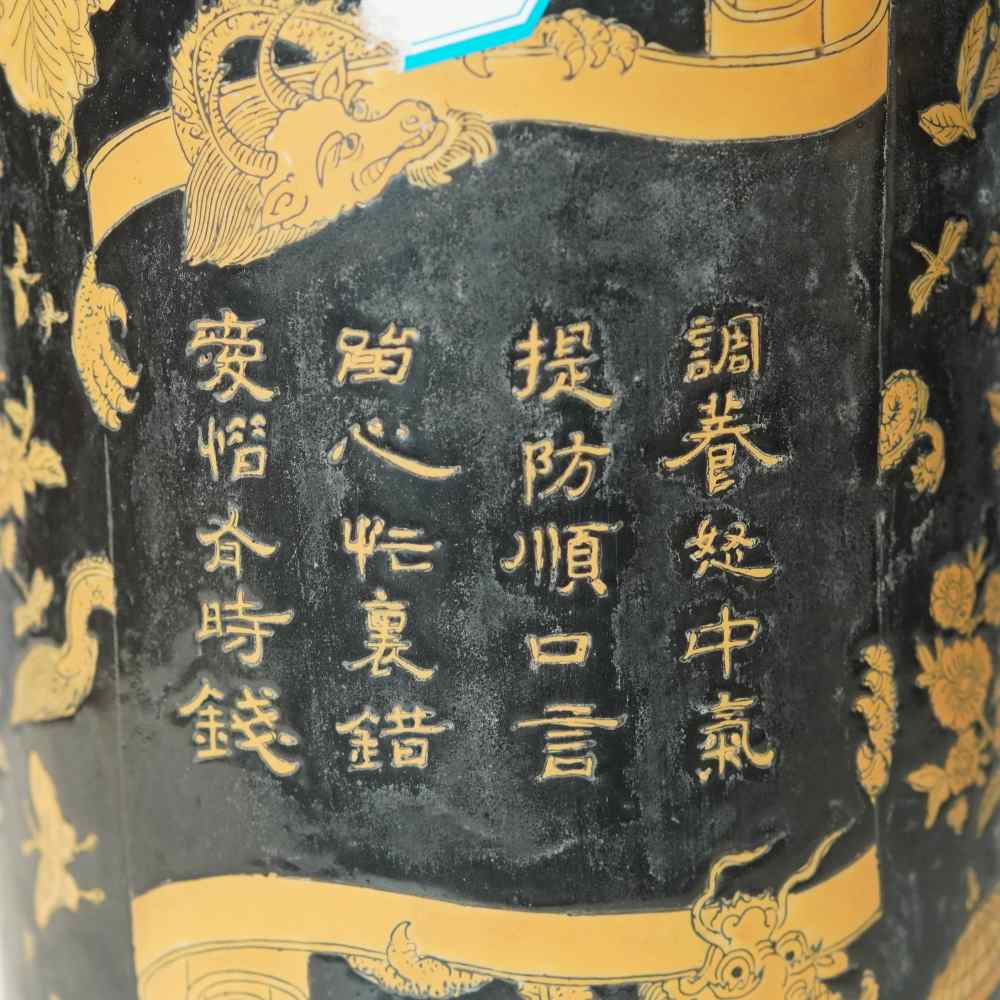 調養怒中氣
提防順口言
留心忙裏錯
愛惜有時錢